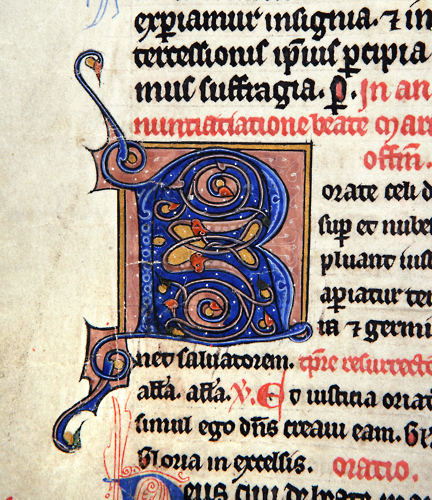 experiamur insignia. ⁊ in
tercessionis ip̄ius p̱cipia
mus suffragia. p̱. In an
nuntiatiatione beate mari
offm̄.
R
orate celi d
sup et nubes
pluant iust
ap̱iatur ter
ra ⁊ germi
net saluatorem. tp̄re resurrecto
aƚƚa. aƚƚa. V̄. Et iusticia oria
simul ego dn̄s creaui eam.
Gloria in excelsis. oratio.
Deus qui de beate